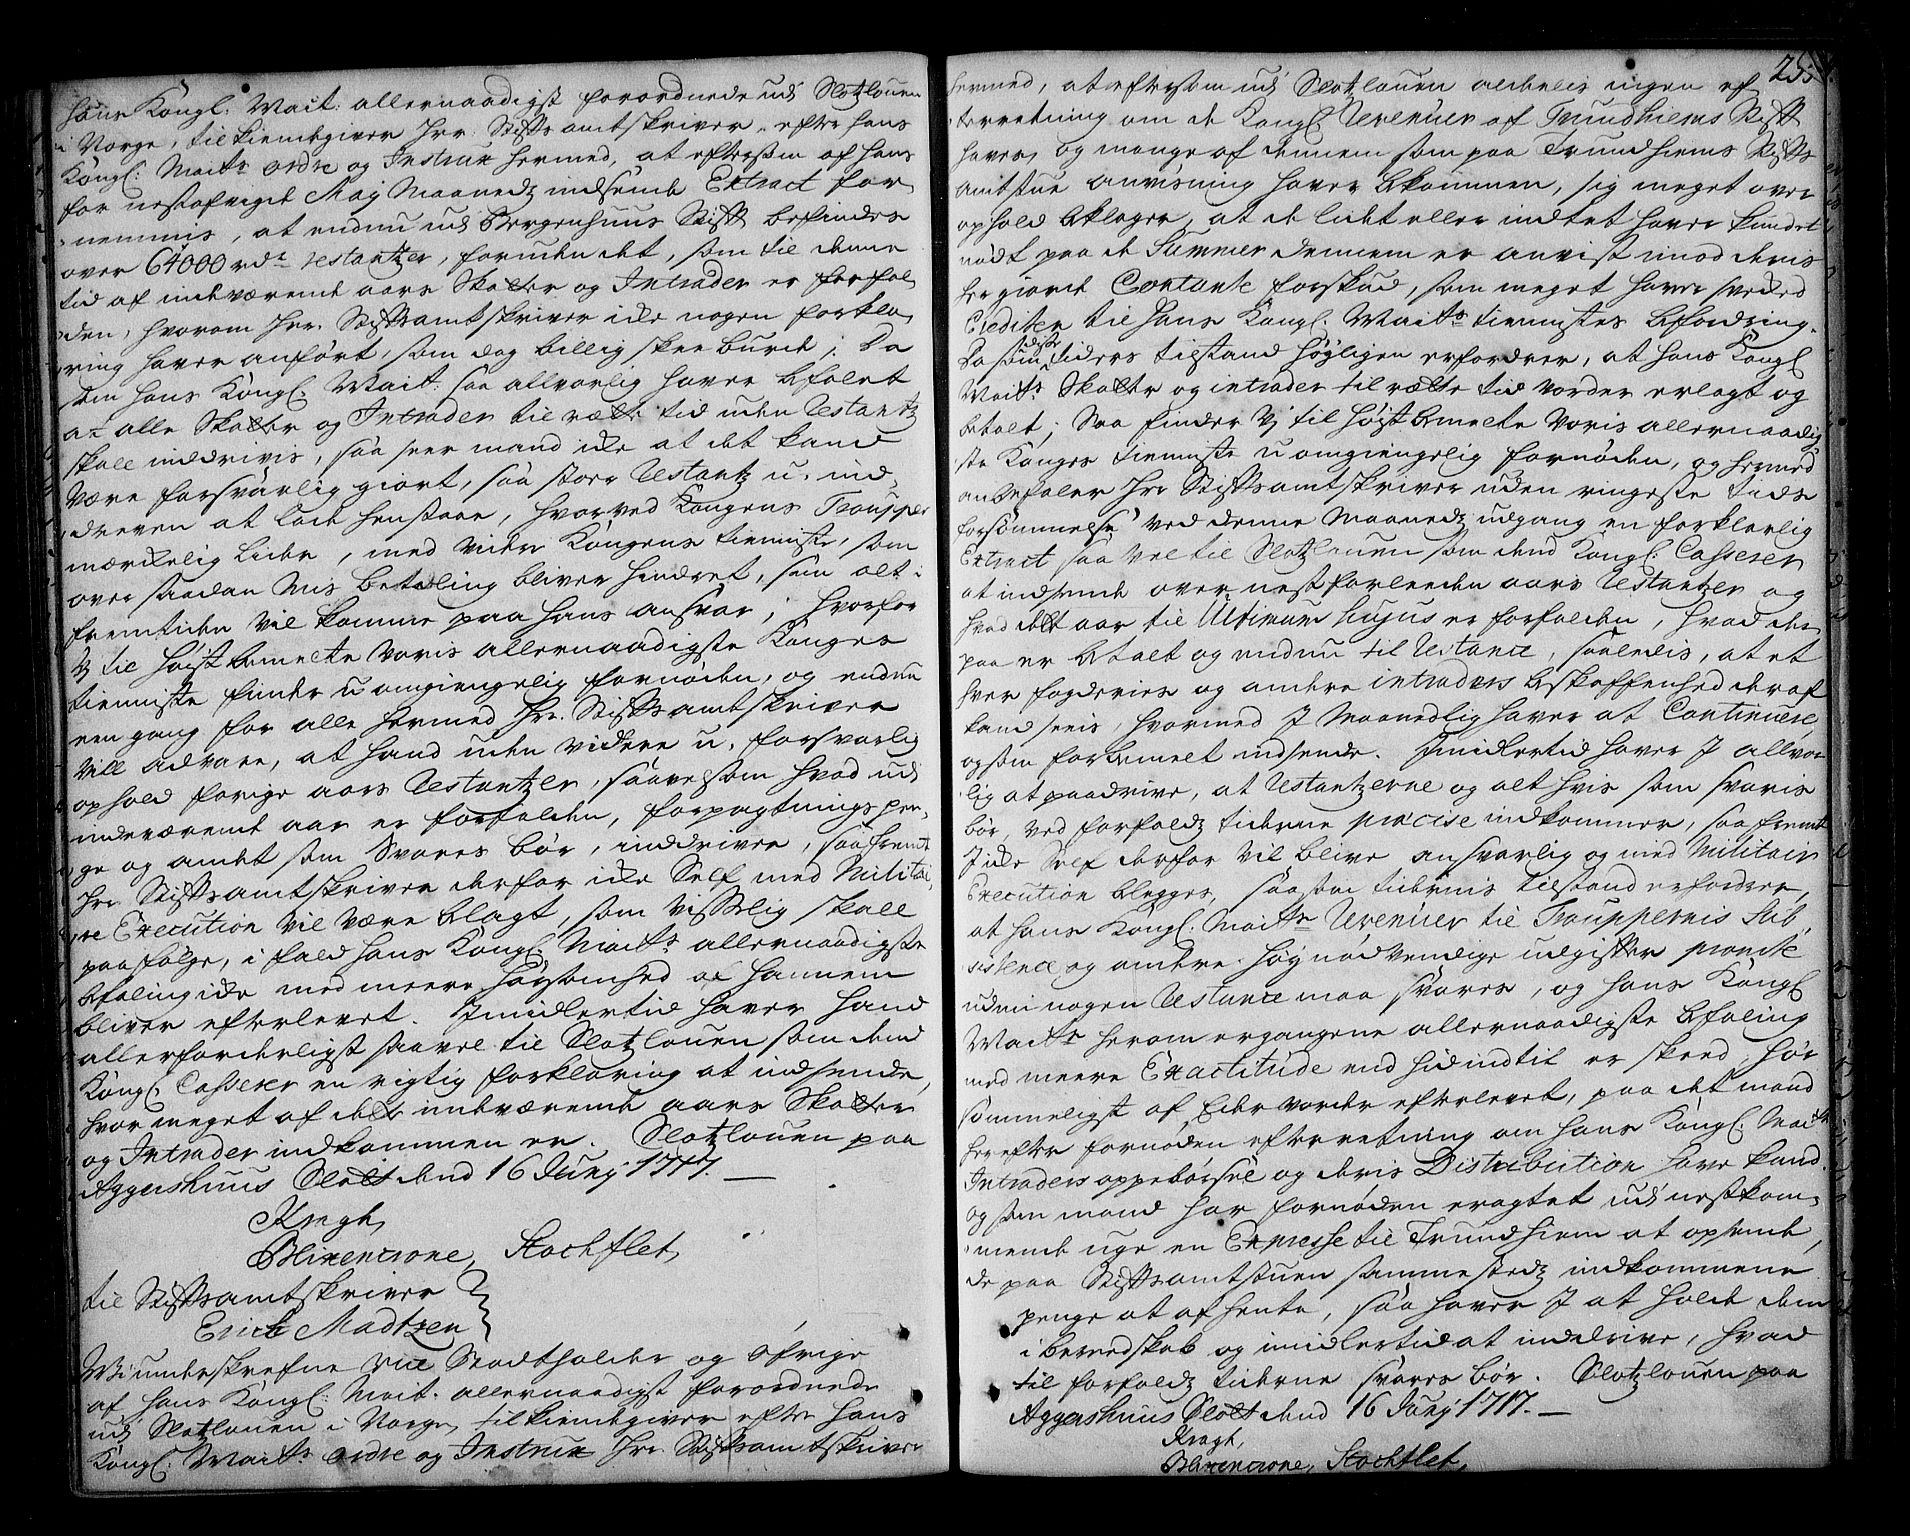 hans Kongl: Mait: allernaadigst forordnede udj Slotzlouen
i Norge, tilkiendegiver Hrr Stiftsamtskriver, efter hans
Kongl: Maits ordre og Instrux hermed, at eftersom af hans
for nestafvigte Maj Maanedz indsende Extract for
nemmis, at endnu udj Bergenhuus Stift befindes
over 64000 rdr restantzer, foruden det, som til denne
tid af indeværende aars Skatter og Intrader er forfal
den, hvorom Hrr. Stiftsamtskriver icke nogen forkla
ring haver anført, som dog billig skee burde; Da
som hans Kongl: Mait: saa allvorlig haver befalet
at alle Skatter og Intrader til rætte tid uden Restantz
skall inddrivis, saa seer mand icke at det kand
være forsvarlig giort, saa store Restantz u-ind
dreven at lade henstaae, hvorved Kongens Troupper
mærckelig lider, med videre Kongens tienniste, som
over saadan mis betaling bliver hindret, som alt i
fremtiden vil komme paa hans ansvar; hvorfor
Vj til høystbemelte voris allernaadigste Konges
tienniste finder u-omgiengelig fornøden, og endnu
een gang for alle hermed Hrr. Stiftsamtskriver
vill advare, at hand uden videre u-forsvarlig
ophold forige aars Restantzer, saavelsom hvad udj
indeværende aar er forfalden, forpagtnings pen
ge og andet som Svares bør, inddriver, saafremt
Hrr Stiftsamtskriver derfor icke Self med Militai
re Execution vil være belagt, som visselig skall
paafølge, i fald hans Kongl: Maits allernaadigste
befaling icke med meere Høystenhed af hannem
bliver efterlevet. Imidlertid haver hand
allerforderligst saavel til Slotzlouen som dend
Kongl: Casserer en rigtig forklaring at indsende,
hvor meget af dette indeværende aars Skatter
og Intrader indkommen er. Slotzlouen paa
Aggershuus Slott dend 16 Junj 1717. —
Kragh,
Blixencrone, Stochflet,
til Stiftsamtskriver
Erich Madtzen
Wi underskrefne Vice Stadtholder og Øfrige
af hans Kongl: Mait. allernaadigst forordnede
udj Slotzlouen i Norge, tilkiendegiver efter hans
Kongl: Maits ordre og Instrux Hrr Stiftsamtskriver
255
hermed, at eftersom udj Slotzlouen aldelis ingen ef
terretning om de Kongl Revenuer af Trundhiems Stift
haves, og mange af dennem som paa Trundhiems Stifts
amtstue anvisning haver bekommen, sig meget over
ophold beklager, at de lidet eller indtet haver kundet
nødt paa de Summer dennem er anvist imod deris
her giorde Contante forskud, som meget haver svecked
Crediten til hans Kongl: Maits tiennistes befordring.
Da som disse tiders tilstand høyligen erfordrer, at hans Kongl
Maits Skatter og intrader til rætte tid vorder erlagt og
betalt; Saa finder Vj til høystbemelte voris allernaadig
ste Konges tienniste u-omgiengelig fornøden, og hermed
anbefaler Hrr Stiftsamtskriver uden ringeste tids
forsømmelse ved denne Maanedz udgang en forklarlig
Extract saa vel til Slotzlouen som dend Kongl: Casserer
at indsende over nestforleeden aars Restantzer og
hvad dette aar til Ultimum hujus er forfalden, hvad der
paa er betalt og endnu til Restance, saaledis, at et
hver fogderies og andre intraders beskaffenhed deraf
kand sees, hvormed I Maanedlig haver at Continuere,
og som forbemelt indsende. Imidlertid haver I allvor
lig at paadrive, at Restantzerne og alt hvis som svaris
bør, ved forfaldz tiderne præcise indkommer, saafremt
I icke Self derfor vil blive ansvarlig og med Militair
Execution belegges, saasom tidernis tilstand erfordrer,
at hans Kongl: Maitts Revenuer til Trouppernis Sub
sistence og andre høynødvendige udgifter promte
uden nogen Restance maa svares, og hans Kongl
Maitts herom ergangene allernaadigste befaling
med meere Exactitude end hid indtil er skeed, hør
sommeligst af Eder vorder efterlevet, paa det mand
herefter fornøden efterretning om hans Kongl: Maitts
Intraders oppebørsel og deris Distribution have kand.
og som mand har fornøden eragtet udj nestkom
mende uge en Expresse til Trundhiem at opsende,
de paa Stiftsamtstuen sammestedz indkommene
penge at afhente, saa haver I at holde dem
i beredskab og imidlertid at inddrive, hvad
til forfaldz tiderne svares bør. Slotzlouen paa
Aggershuus Slott dend 16 Junj 1717. —
Kragh,
Blixencrone, Stochflet,